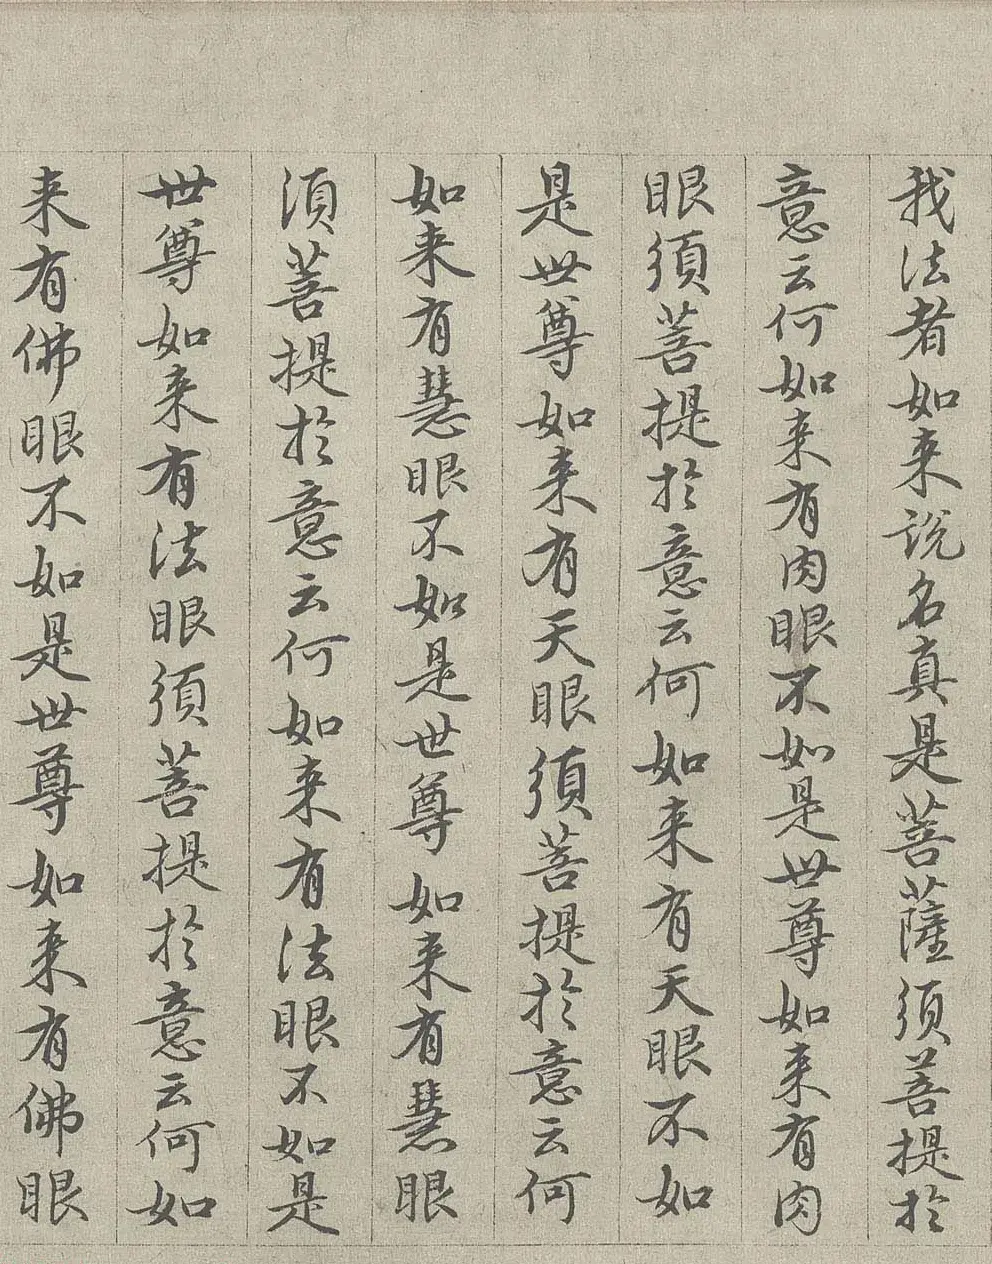 我法者如来说名真是菩薩須菩提於
意云何如来有肉眼不如是世尊如来有肉
眼須菩提於意云何如来有天眼不如
是世尊如来有天眼須菩提於意云何
如来有慧眼不如是世尊如来有慧眼
須菩提於意云何如来有法眼不如是
世尊如来有法眼須菩提於意云何如
来有佛眼不如是世尊如来有佛眼